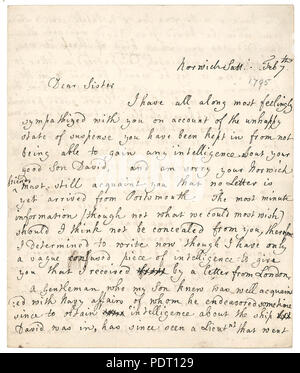 Norwich Satt: Feb 7th
1795
Dear Sister
I have all along most feelingly
sympathized with you on account of the unhappy
state of suspense you have been kept in from not
being able to gain any intelligence about your
good Son David, and am sorry your Norwich
friends must still acquaint you that no Letter is
yet arrived from Portsmouth. The most minute
information (though not what we could most wish)
should I think not be concealed from you, therefore
I determined to write now though I have only
a vague confused piece of intelligence to give
you that I received by a Letter from London,
a Gentleman who my Son knew was well acquain
ted with Navy affairs of whom he endeavored sometime
since to obtain intelligence about the ship
David was in, has since seen a Lieut. that went
alamy
Image ID: PDT129
www.alamy.com